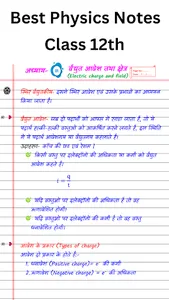 Best Physics Notes
Class 12th
अध्याय- वैद्युत आवेश तथा क्षेत्र
(Electric charge and field)
स्थिर वैद्युतिकी:- इसमें स्थिर आवेश एवं उसके प्रभावों का अध्ययन
किया जाता है।
वैद्युत आवेश:- जब दो पदार्थों को आपस में रगड़ा जाता है, तो ये
पदार्थ हल्की-हल्की वस्तुओं को आकर्षित करने लगते हैं, इस स्थिति
में ये पदार्थ आवेशमय या वैद्युतमय कहलाते हैं।
उदाहरण- काँच की छड़ एवं रेशम।
किसी वस्तु पर इलेक्ट्रॉनों की अधिकता या कमी को वैद्युत
आवेश कहते हैं।
i = q
t
यदि वस्तुओं पर इलेक्ट्रॉनों की अधिकता है तो वह
ऋणावेशित होगी।
यदि वस्तुओं पर इलेक्ट्रॉनों की कमी है तो वह वस्तु
धनावेशित होगी।
आवेश के प्रकार (Types of charge)
आवेश दो प्रकार के होते हैं:-
1. धनावेश (Positive charge)= e⁻ की कमी
2. ऋणावेश (Negative charge) = e⁻ की अधिकता